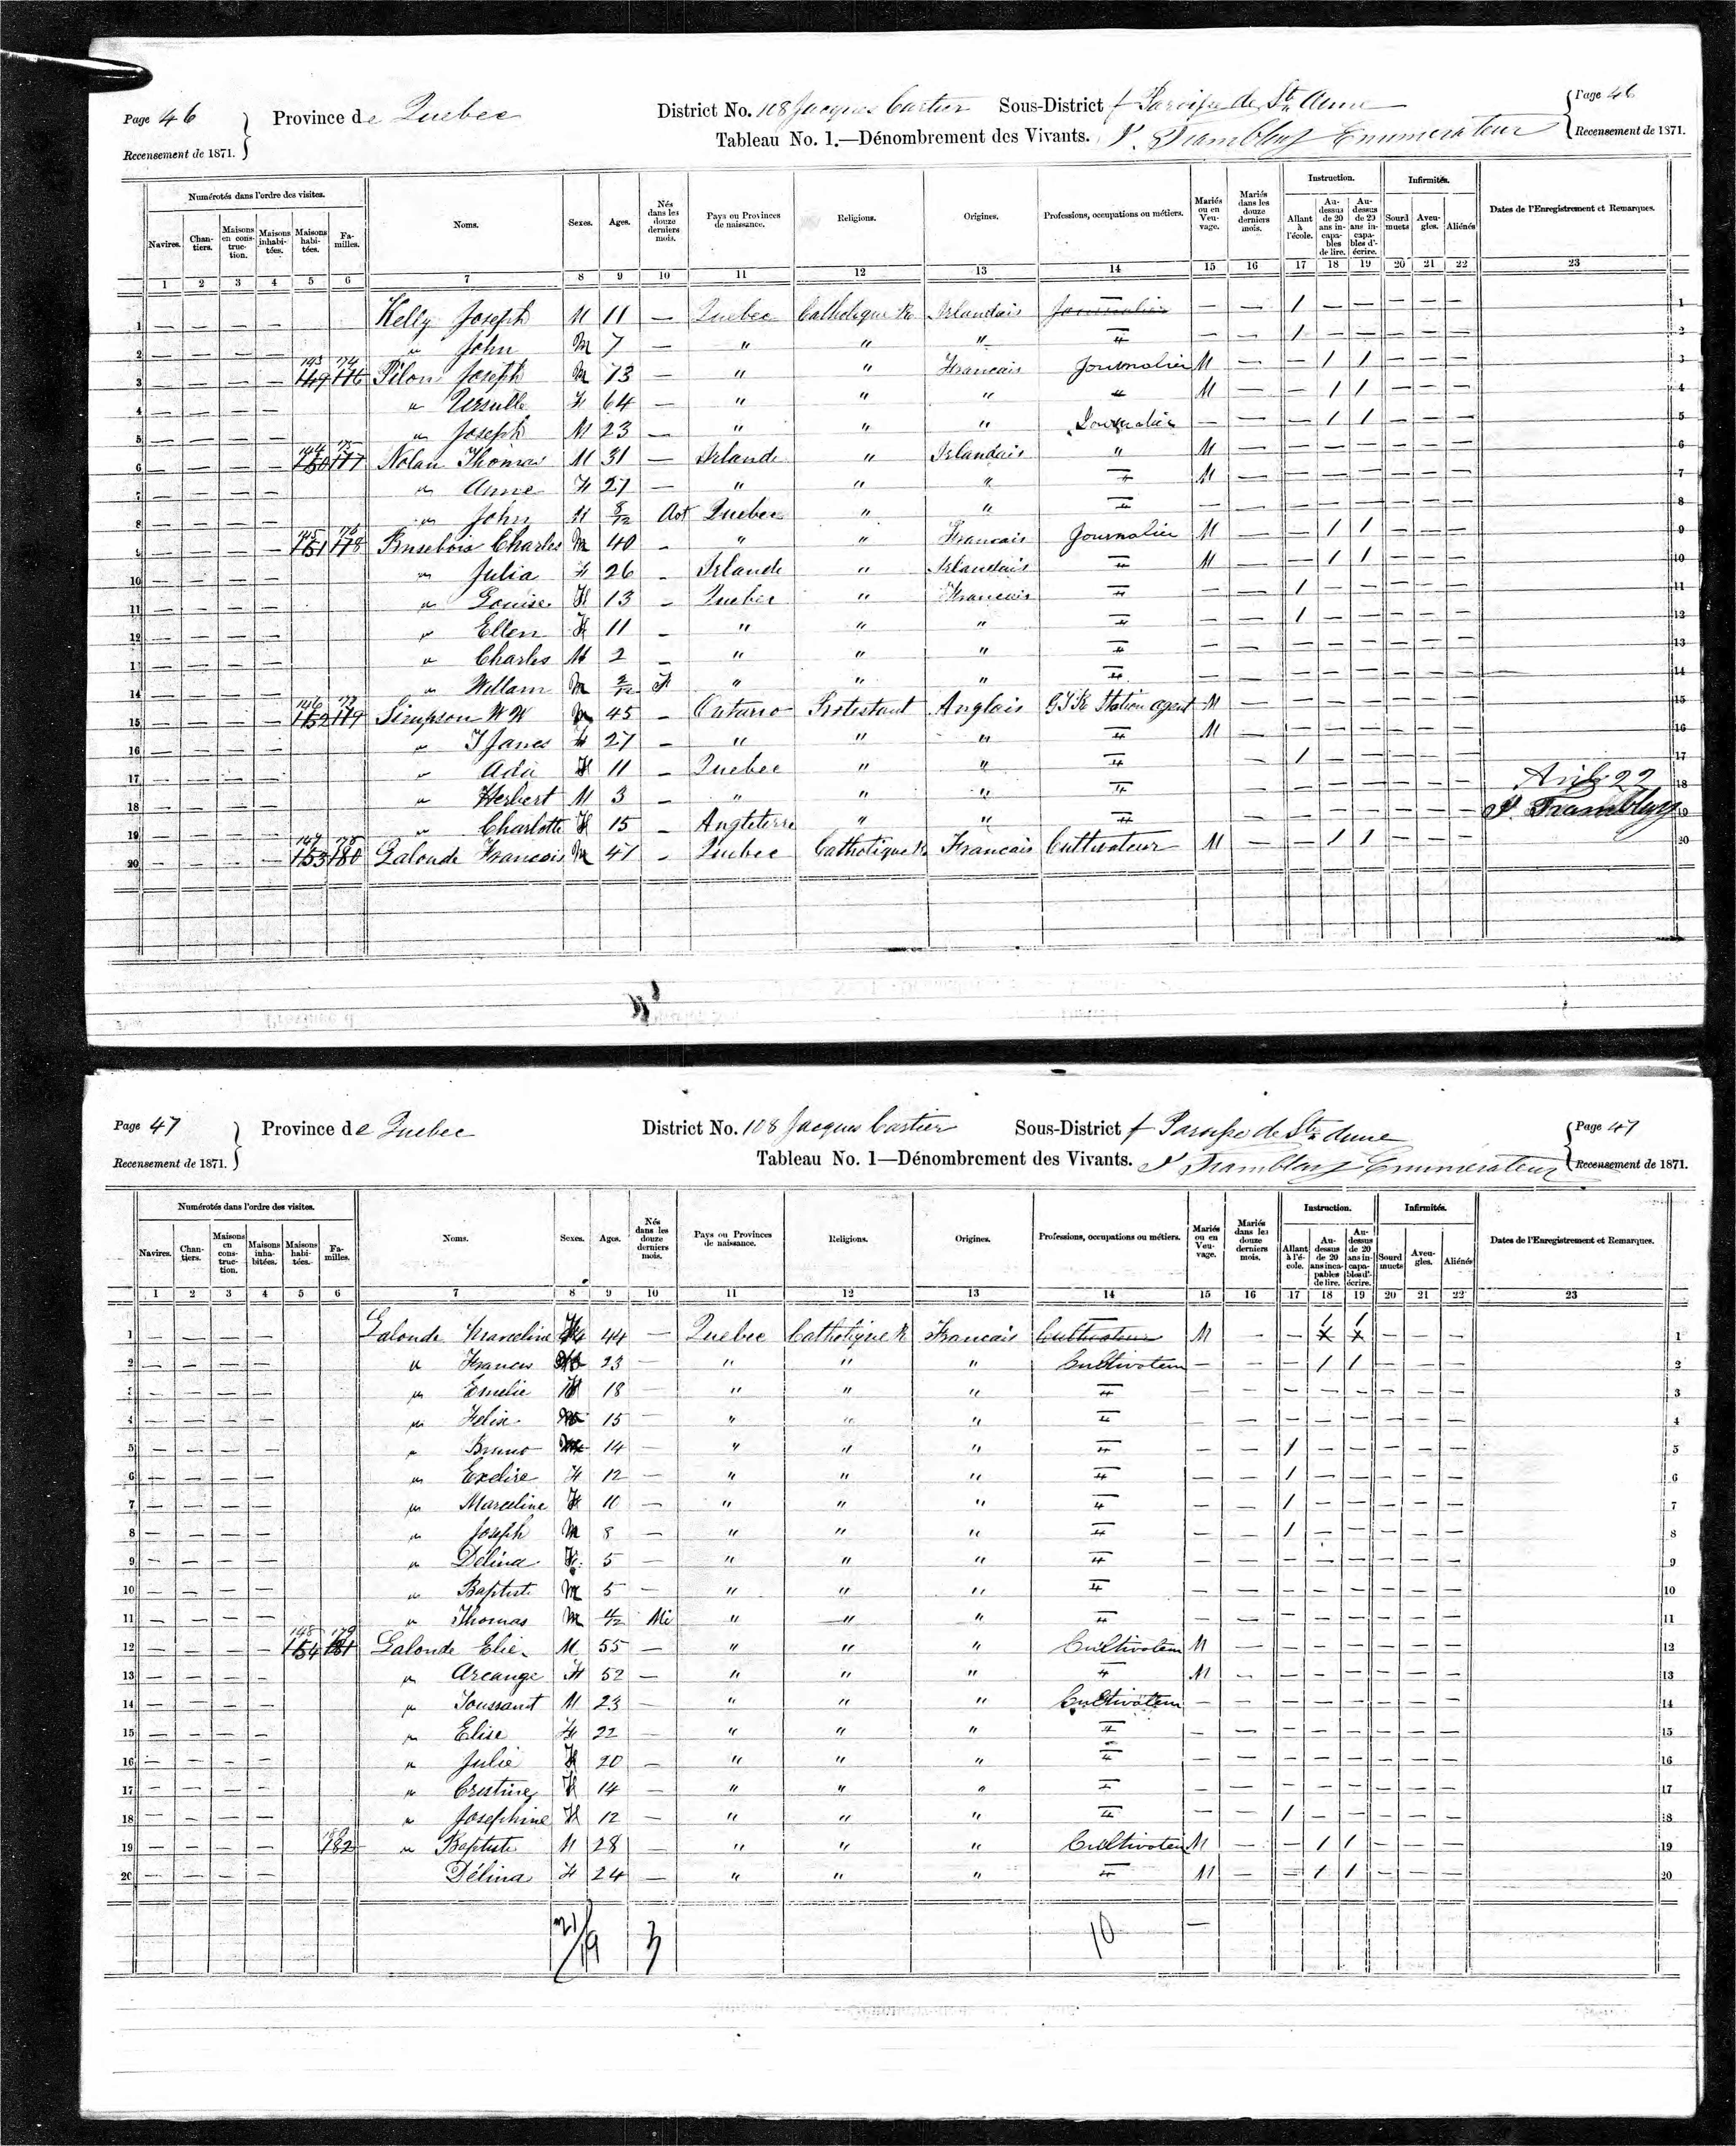 Page 46 Province de Quebec District No. 108 Jacques Cartier Sous-District f Paroisse de Ste Anne Page 46
Recensement de 1871. Tableau No. 1.—Dénombrement des Vivants. Tramblay Enumerateur Recensement de 1871.
Numérotés dans l'ordre des visites. Instruction. Infirmités.
Navires. Chantiers. Maisons en construction. Maisons inhabitées. Maisons habitées. Familles. Noms. Sexes. Ages. Nés dans les douze derniers mois. Pays ou Provinces de naissance. Religions. Origines. Professions, occupations ou métiers. Mariés ou en Veuvage. Mariés dans les douze derniers mois. Allant à l'école. Au-dessus de 20 ans incapables de lire. Au-dessus de 20 ans incapables d'écrire. Sourd muets Aveugles. Aliénés Dates de l'Enregistrement et Remarques.
1 2 3 4 5 6 7 8 9 10 11 12 13 14 15 16 17 18 19 20 21 22 23
1 — — — — Kelly Joseph M 11 — Quebec Catholique R Irlandais Journalier — — — 1 — — — — — 1
2 — — — — " John M 7 — " " " — — — 1 — — — — — 2
3 — — — — 149 176 Pilon Joseph M 73 — " " Francais Journalier M — — 1 1 — — — 3
4 — — — — " Ursulle F 64 — " " " — M — — 1 1 — — — 4
5 — — — — " Joseph M 23 — " " " Journalier — — — 1 1 — — — 5
6 — — — — 150 177 Nolan Thomas M 31 — Irlande " Irlandais " M — — — — — — — 6
7 — — — — " Anne F 27 — " " " — M — — — — — — — 7
8 — — — — " John M 8/12 Aot Quebec " " — — — — — — — — — 8
9 — — — — 145 151 178 Brisebois Charles M 40 - " " Francais Journalier M — — 1 1 — — — 9
10 — — — — " Julia F 26 - Irlande " Irlandais — M — — 1 1 — — — 10
11 — — — — " Louise F 13 - Quebec " Francais — — — 1 — — — — — 11
12 — — — — " Ellen F 11 - " " " — — — 1 — — — — — 12
13 — — — — " Charles M 2 — " " " — — — — — — — — — 13
14 — — — — " Willam M 2/12 F " " " — — — — — — — — — 14
15 — — — — 146 152 179 Simpson W W M 45 - Ontario Protestant Anglais G T R Station agent M — — — — — — — 15
16 — — — — " T Janes F 27 — " " " — M — — — — — — — 16
17 — — — — " Ada F 11 - Quebec " " — — — 1 — — — — — 17
18 — — — — " Herbert M 3 — " " " — — — — — — — — — 18
19 — — — — " Charlotte F 15 - Angleterre " " — — — — — — — — — Tramblay 19
20 — — — — 147 153 180 Lalonde Francois M 47 - Quebec Catholique R Francais Cultivateur M — — 1 1 — — — 20
Page 47 Province de Quebec District No. 108 Jacques Cartier Sous-District f Paroisse de Ste Anne Page 47
Recensement de 1871. Tableau No. 1—Dénombrement des Vivants. Tramblay Enumerateur Recensement de 1871.
Numérotés dans l'ordre des visites. Instruction. Infirmités.
Navires. Chantiers. Maisons en construction. Maisons inhabitées. Maisons habitées. Familles. Noms. Sexes. Ages. Nés dans les douze derniers mois. Pays ou Provinces de naissance. Religions. Origines. Professions, occupations ou métiers. Mariés ou en Veuvage. Mariés dans les douze derniers mois. Allant à l'école. Au-dessus de 20 ans incapables de lire. Au-dessus de 20 ans incapables d'écrire. Sourd muets Aveugles. Aliénés Dates de l'Enregistrement et Remarques.
1 2 3 4 5 6 7 8 9 10 11 12 13 14 15 16 17 18 19 20 21 22 23
1 — — — — Lalonde Marceline F 44 — Quebec Catholique R Francais Cultivateur M — — 1 1 — — — 1
2 — — — — " Francis M 23 — " " " Cultivateur — — — 1 1 — — — 2
3 — — — — " Emelie F 18 — " " " — — — — — — — — — 3
4 — — — — " Felix M 15 — " " " — — — — — — — — — 4
5 — — — — " Bruno M 14 — " " " — — — 1 — — — — — 5
6 — — — — " Exelire F 12 — " " " — — — 1 — — — — — 6
7 — — — — " Marceline F 10 — " " " — — — 1 — — — — — 7
8 — — — — " Joseph M 8 — " " " — — — 1 — — — — — 8
9 — — — — " Délina F 5 — " " " — — — — — — — — — 9
10 — — — — " Baptist M 5 — " " " — — — — — — — — — 10
11 — — — — " Thomas M 4/12 Mi " " " — — — — — — — — — 11
12 — — — — 148 154 179 181 Lalonde Elie M 55 — " " " Cultivateur M — — — — — — — 12
13 — — — — " Arcange F 52 — " " " — M — — — — — — — 13
14 — — — — " Toussant M 23 — " " " Cultivateur — — — — — — — — 14
15 — — — — " Elise F 22 — " " " — — — — — — — — — 15
16 — — — — " Julie F 20 — " " " — — — — — — — — — 16
17 — — — — " Cristine F 14 — " " " — — — — — — — — — 17
18 — — — — " Josephine F 12 — " " " — — — 1 — — — — — 18
19 — — — — 182 " Baptiste M 28 — " " " Cultivateur M — — 1 1 — — — 19
20 — — — — Délina F 24 — " " " — M — — 1 1 — — — 20
21/19 3 10 —